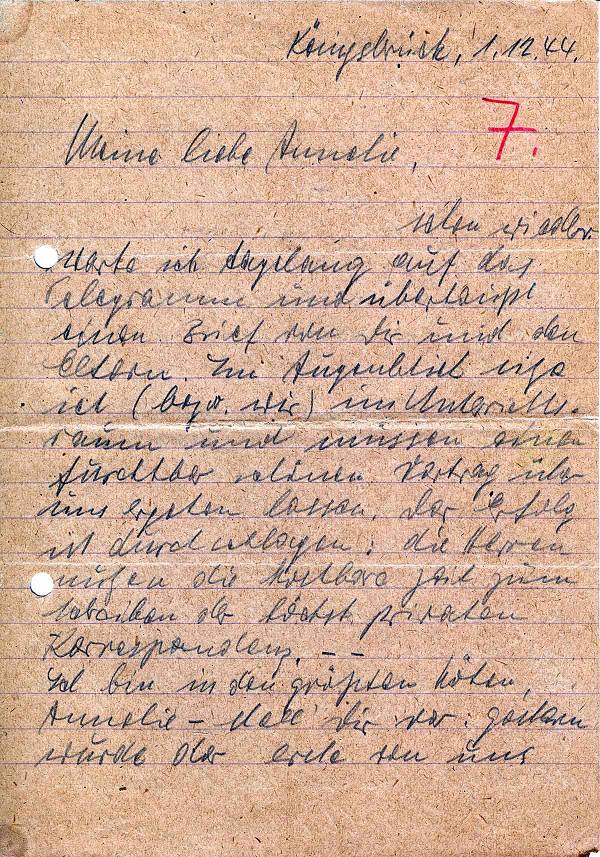 Königsbrück, 1.12.44.
7.
Meine liebe Annelie,
schon wieder
warte ich tagelang auf das
Telegramm und überhaupt
einen Brief von Dir und den
Eltern. Im Augenblick sitze
ich (bezw. wir) im Unterrichts-
raum und müssen einen
furchtbar schönen Vortrag über
uns ergehen lassen. Der Erfolg
ist durchschlagen: die Herren
nutzen die kostbare Zeit zum
Schreiben der höchst privaten
Korrespondenz. --
Ich bin in den größten Nöten,
Annelie – stell' Dir vor: gestern
wurde der erste von uns